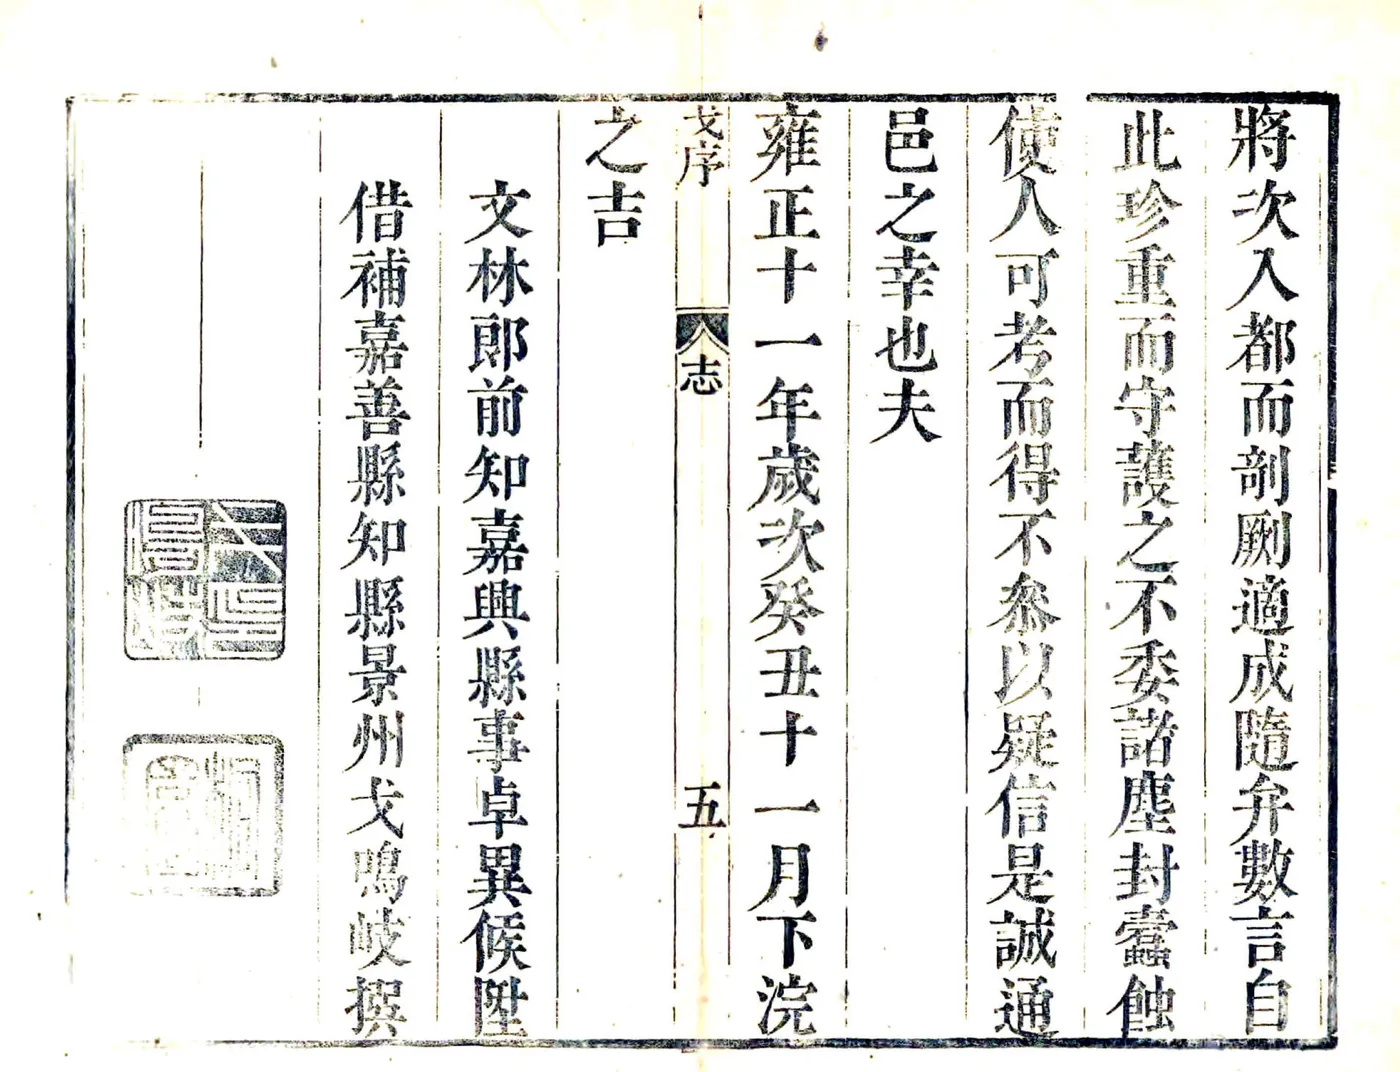 將次入都而剞劂適成隨弁數言自
此珍重而守護之不委諸塵封蠹蝕
使人可考而得不叅以疑信是誠通
邑之幸也夫
雍正十一年歲次癸丑十一月下浣
戈序
志
五
之吉
文林郎前知嘉興縣事卓異候陞
借補嘉善縣知縣景州戈鳴岐撰